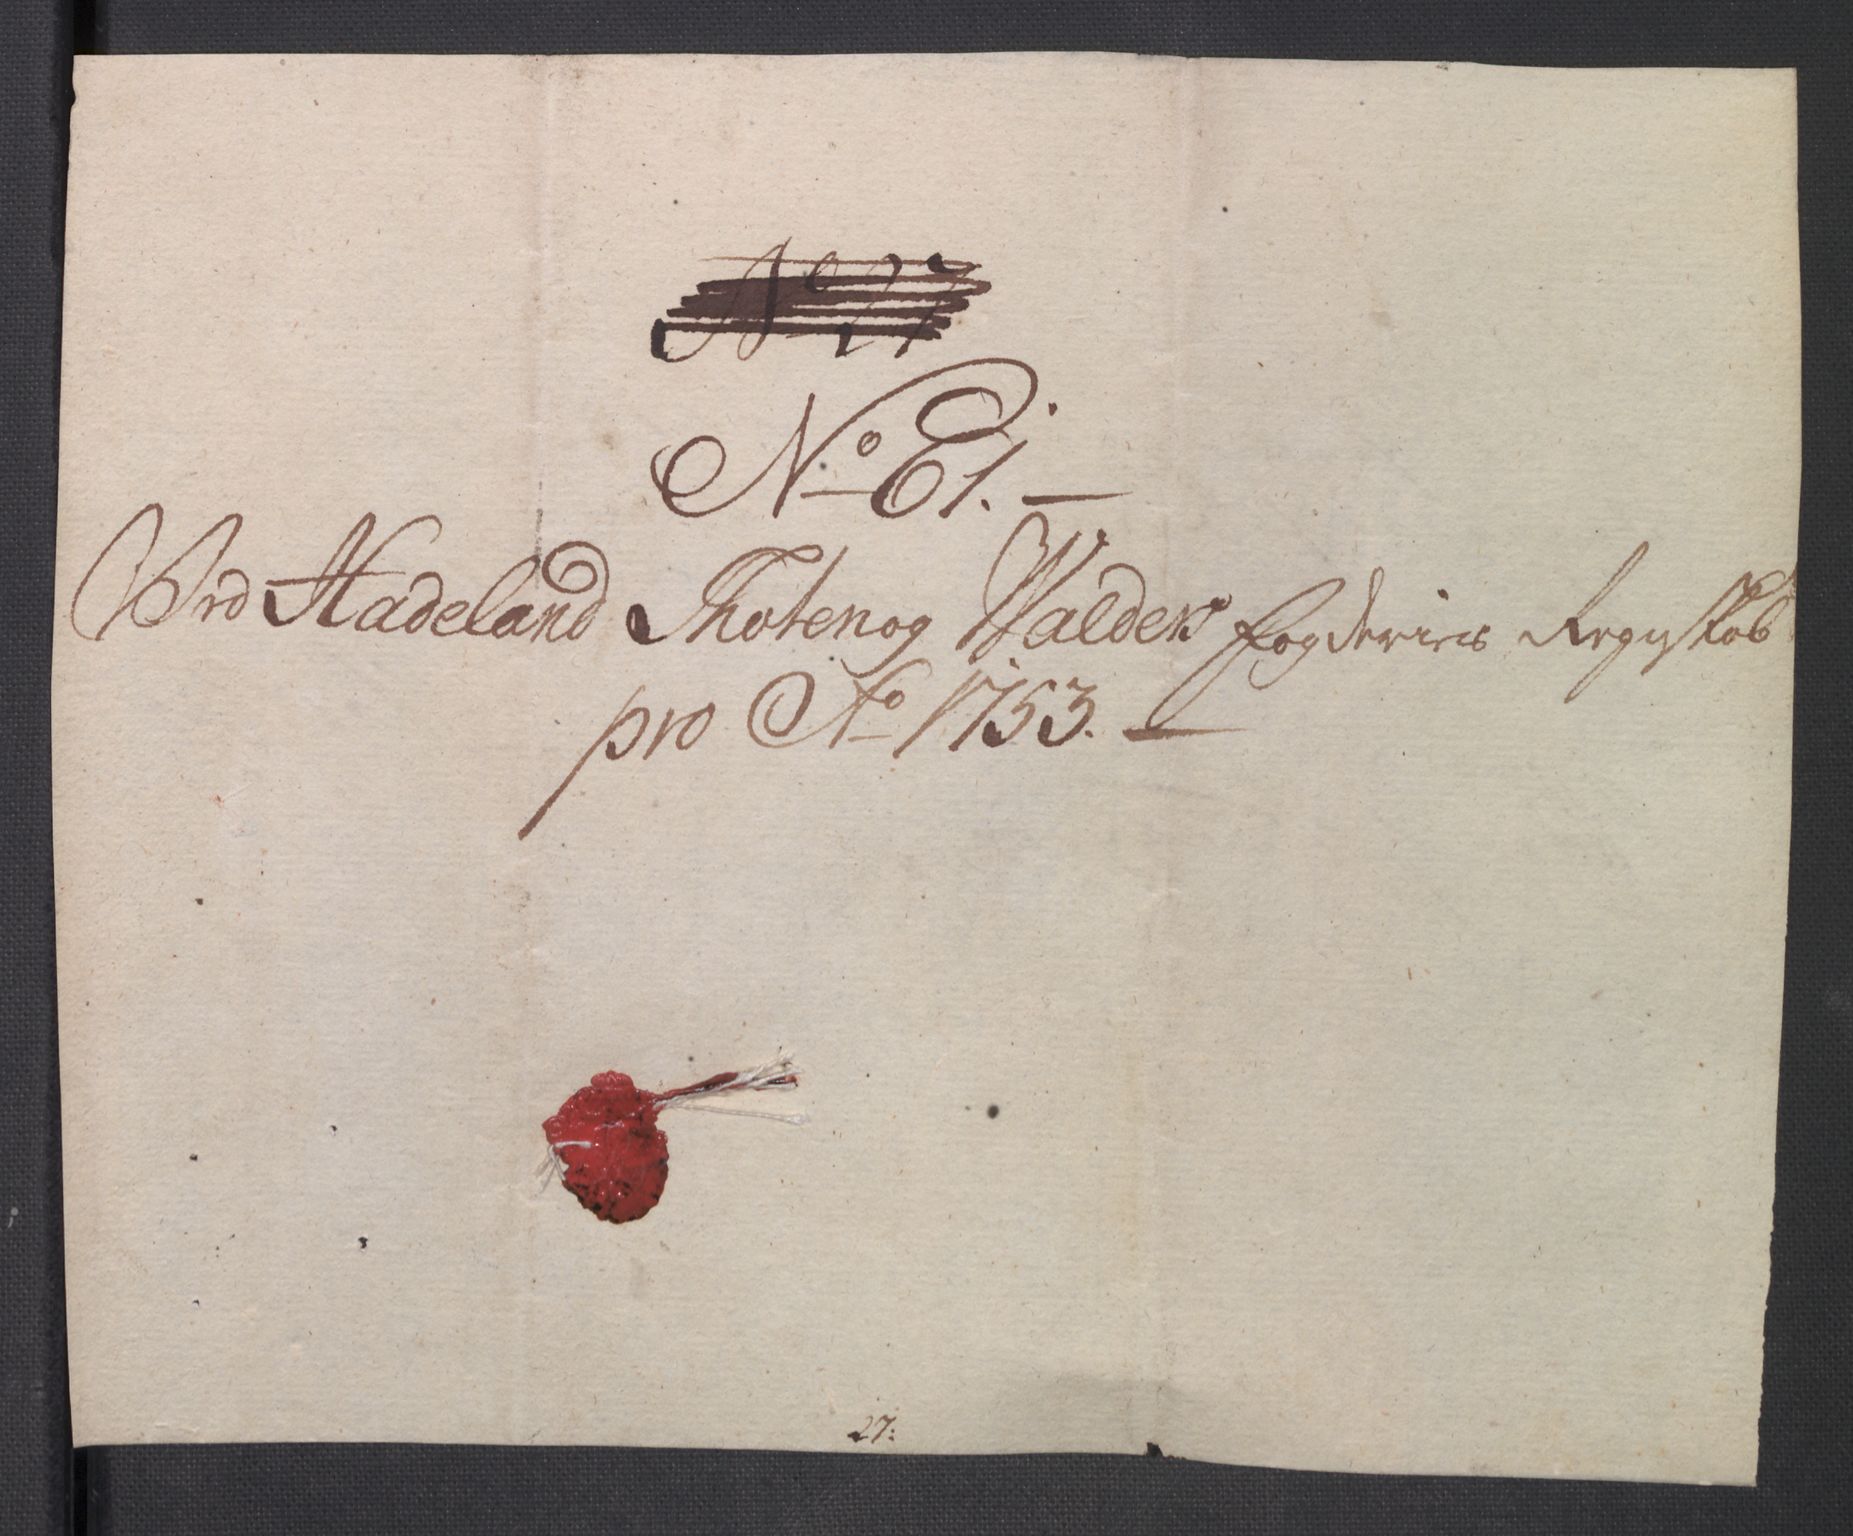 No 27
No E1. —
Ved Hadeland Thoten og Walders Fogderies Regnskab
pro Ao 1753. —
27: